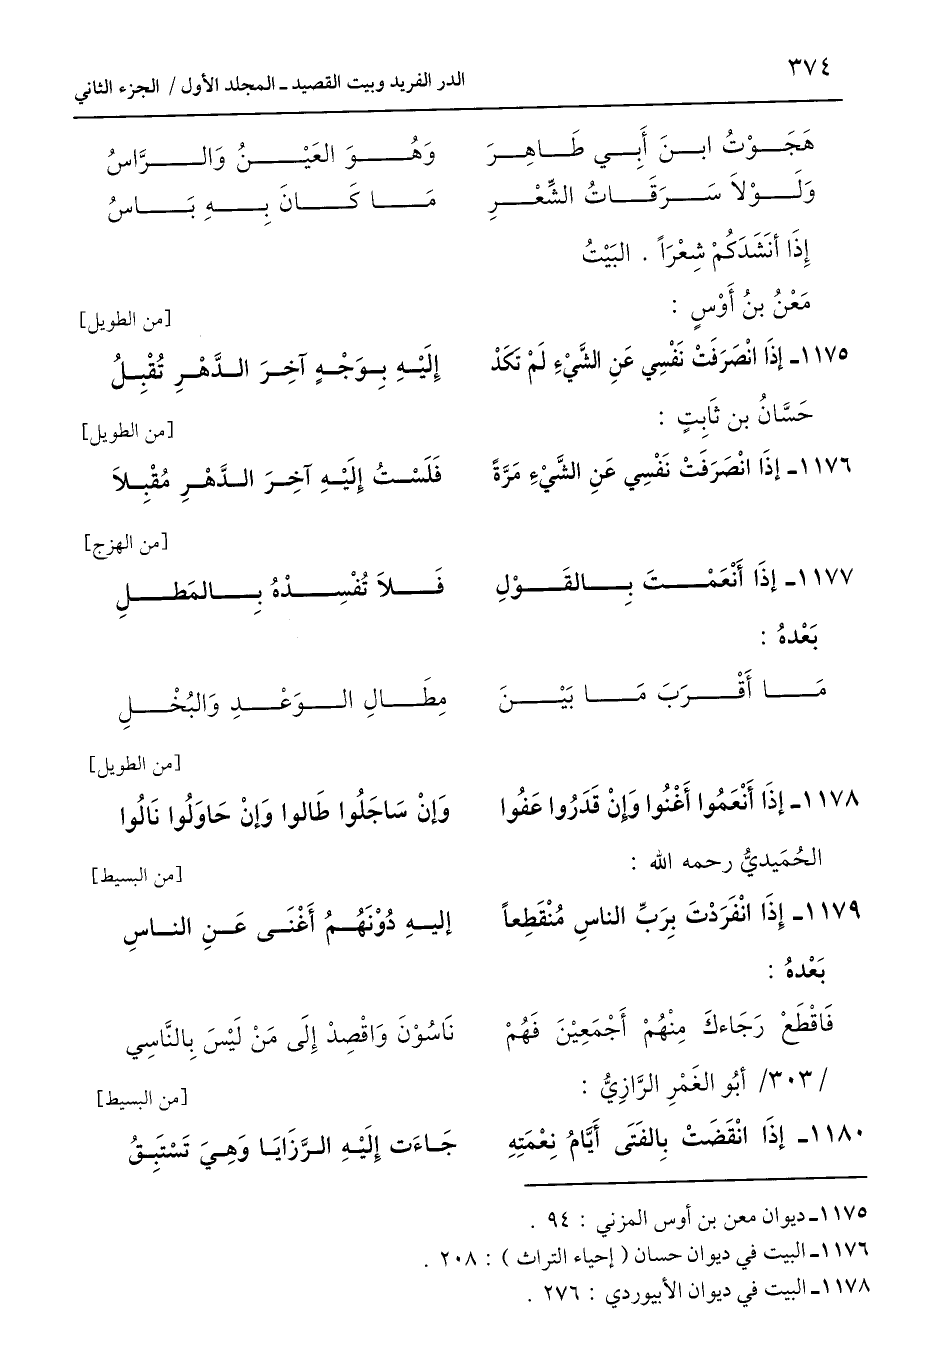 ٣٧٤ الدر الفريد وبيت القصيد ـ المجلد الأول / الجزء الثاني
هَجَوْتُ ابنَ أَبي طَاهِرَ وَهُوَ العَيْنُ وَالرَّاسُ
وَلَوْلاَ سَرَقَاتُ الشِّعْرِ مَا كَانَ بِهِ بَاسُ
إِذَا أنَشَدَكُمْ شِعْرَاً . البَيْتُ
مَعْنُ بنُ أَوْسٍ :
[من الطويل]
١١٧٥ـ إذَا انْصَرَفَتْ نَفْسِي عَنِ الشَّيْءِ لَمْ تَكَدْ إِلَيْهِ بِوَجْهٍ آخِرَ الدَّهْرِ تُقْبِلُ
حَسَّانُ بن ثَابِتٍ :
[من الطويل]
١١٧٦ـ إذَا انْصَرَفَتْ نَفْسِي عَنِ الشَّيْءِ مَرَّةً فَلَسْتُ إِلَيْهِ آخِرَ الدَّهْرِ مُقْبِلاَ
[من الهزج]
١١٧٧ـ إذَا أَنْعَمْتَ بِالقَوْلِ فَلاَ تُفْسِدْهُ بِالمَطلِ
بَعْدهُ :
مَا أَقْرَبَ مَا بَيْنَ مِطَالِ الوَعْدِ وَالبُخْلِ
[من الطويل]
١١٧٨ـ إذَا أَنْعَمُوا أَغْنُوا وَإِنْ قَدَرُوا عَفُوا وَإنْ سَاجَلُوا طَالوا وَإنْ حَاوَلُوا نَالُوا
الحُمَيديُّ رحمه الله :
[من البسيط]
١١٧٩ـ إذَا انْفَرَدْتَ بِرَبِّ الناسِ مُنْقَطِعاً إليهِ دُوْنَهُمُ أَغْنَى عَنِ الناسِ
بَعْدهُ :
فَاقْطَعْ رَجَاءكَ مِنْهُمْ أَجْمَعِيْنَ فَهُمْ نَاسُوْنَ وَاقْصِدْ إِلَى مَنْ لَيْسَ بِالنَّاسِي
/ ٣٠٣/ أَبُو الغَمْرِ الرَّازِيُّ :
[من البسيط]
١١٨٠ـ إذَا انْقَضَتْ بِالفَتَى أَيَّامُ نِعْمَتِهِ جَاءَت إِلَيْهِ الرَّزَايَا وَهِيَ تَسْتَبِقُ
١١٧٥ـ ديوان معن بن أوس المزني : ٩٤ .
١١٧٦ـ البيت في ديوان حسان ( إحياء التراث ) : ٢٠٨ .
١١٧٨ـ البيت في ديوان الأبيوردي : ٢٧٦ .